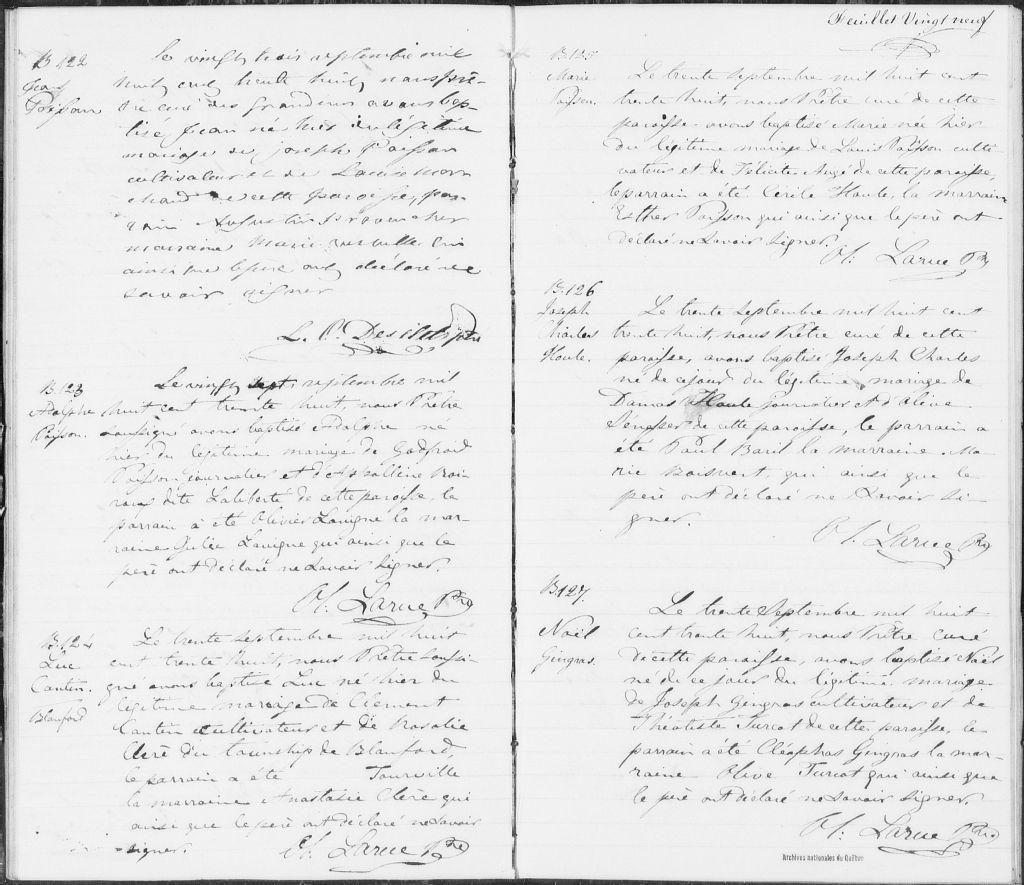 B. 122
Jean
Poisson
le vingt trois septembre mil
huit cent trente huit, nous prê-
tre curé des grondines avons bap-
tisé Jean né hier du légitime
mariage de joseph Poisson
cultivateur et de Louise
de cette paroisse, par-
rain Augustin Provencher
marraine Marie qui
ainsi que le père ont déclaré ne
savoir signer
B. 123
Adolphe
Poisson.
Le vingt sept septembre mil
huit cent trente huit, nous Prêtre
soussigné avons baptisé Adolphe né
hier du légitime mariage de Godfroid
Poisson journalier et d'Appolline
dite Laliberté de cette paroisse, le
parrain a été Olivier Lavigne la mar-
raine Julie Lavigne qui ainsi que le
père ont déclaré ne savoir signer.
Ol: Larue Ptre
B. 124
Luc
Cantin.
Blanford
Le trente septembre mil huit
cent trente huit, nous Prêtre soussi-
gné avons baptisé Luc né hier du
légitime mariage de Clément
Cantin cultivateur et de Rosalie
Clere du township de Blanford,
le parrain a été Tourville
la marraine Anastasie Clere qui
ainsi que le père ont déclaré ne savoir
signer.
Ol: Larue Ptre
Feuillet Vingt neuf
B. 125
Marie
Poisson.
Le trente Septembre mil huit cent
trente huit, nous Prêtre curé de cette
paroisse avons baptisé Marie née hier
du légitime mariage de Louis Poisson culti-
vateur et de Félicité Augé de cette paroisse,
le parrain a été Cérile Houle, la marraine
Esther Poisson qui ainsi que le père ont
déclaré ne savoir signer.
Ol: Larue Ptre
B. 126
Joseph
Charles
Houle.
Le trente Septembre mil huit cent
trente huit, nous Prêtre curé de cette
paroisse, avons baptisé Joseph Charles
né de ce jour du légitime mariage de
Damas Houle journalier et d'Olive
de cette paroisse, le parrain a
été Paul Baril la marraine Ma-
rie Boisvert qui ainsi que le
père ont déclaré ne savoir si-
gner.
Ol: Larue Ptre
B. 127.
Noël
Gingras.
Le trente Septembre mil huit
cent trente huit, nous Prêtre curé
de cette paroisse, avons baptisé Noël
né du ce jour du légitime mariage
de Joseph Gingras cultivateur et de
Théotiste Turcot de cette paroisse, le
parrain a été Cléophas Gingras la mar-
raine Olive Turcot qui ainsi que
le père ont déclaré ne savoir signer.
Ol: Larue Ptre
Archives nationales du Québec